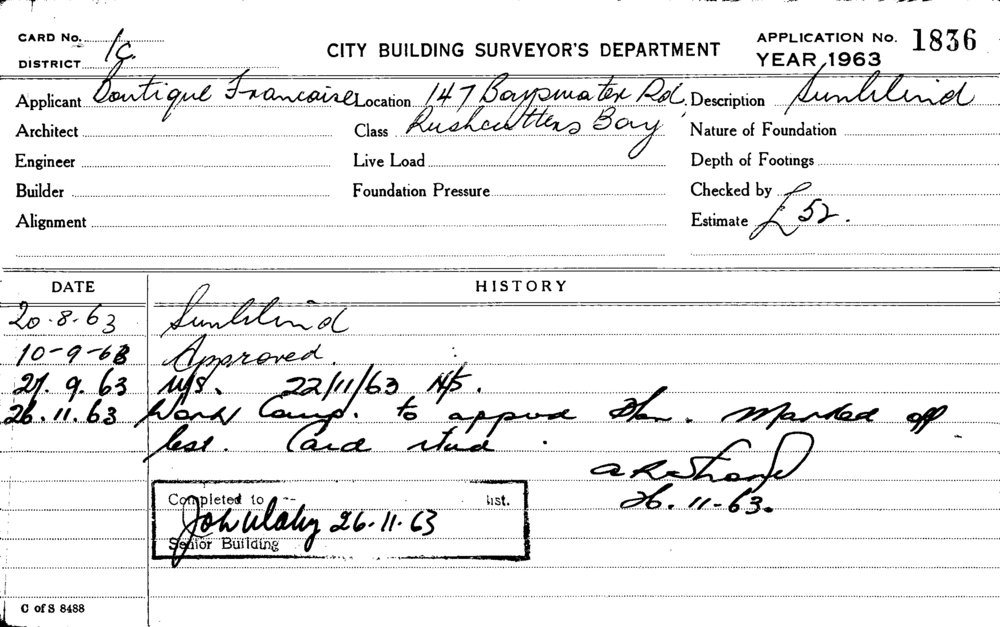 CARD No. 1g. CITY BUILDING SURVEYOR'S DEPARTMENT APPLICATION No. 1836
DISTRICT YEAR 1963
Applicant Boutique Francaise Location 147 Bayswater Rd, Description Sunblind
Architect Class Rushcutters Bay Nature of Foundation
Engineer Live Load Depth of Footings
Builder Foundation Pressure Checked by
Alignment Estimate £52.
DATE HISTORY
20.8.63 Sunblind
10-9-63 Approved.
27.9.63 N/S. 22/11/63 N/S.
26.11.63 Work Comp. to appvd Plan. Marked off
list. Card
26.11-63.
Completed to list.
26.11.63
Senior Building
C of S 8488